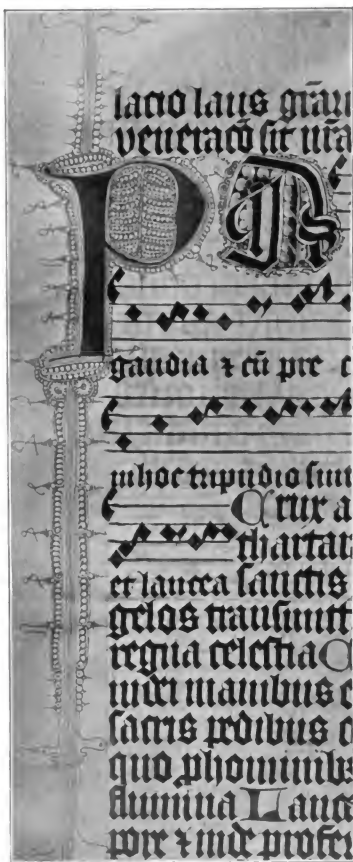 lacio laus grāꝝ
veneracō sit nr̄a
PA
gaudia ⁊ cū pre c
in hoc tripudio sint
Crux a
thartar
et lancea sanctis
gelos transmitt
regna celestia C
iudei manibus c
sacris pedibus c
quo ꝓ hominibꝫ
flumina Lance
pore ⁊ inde profer